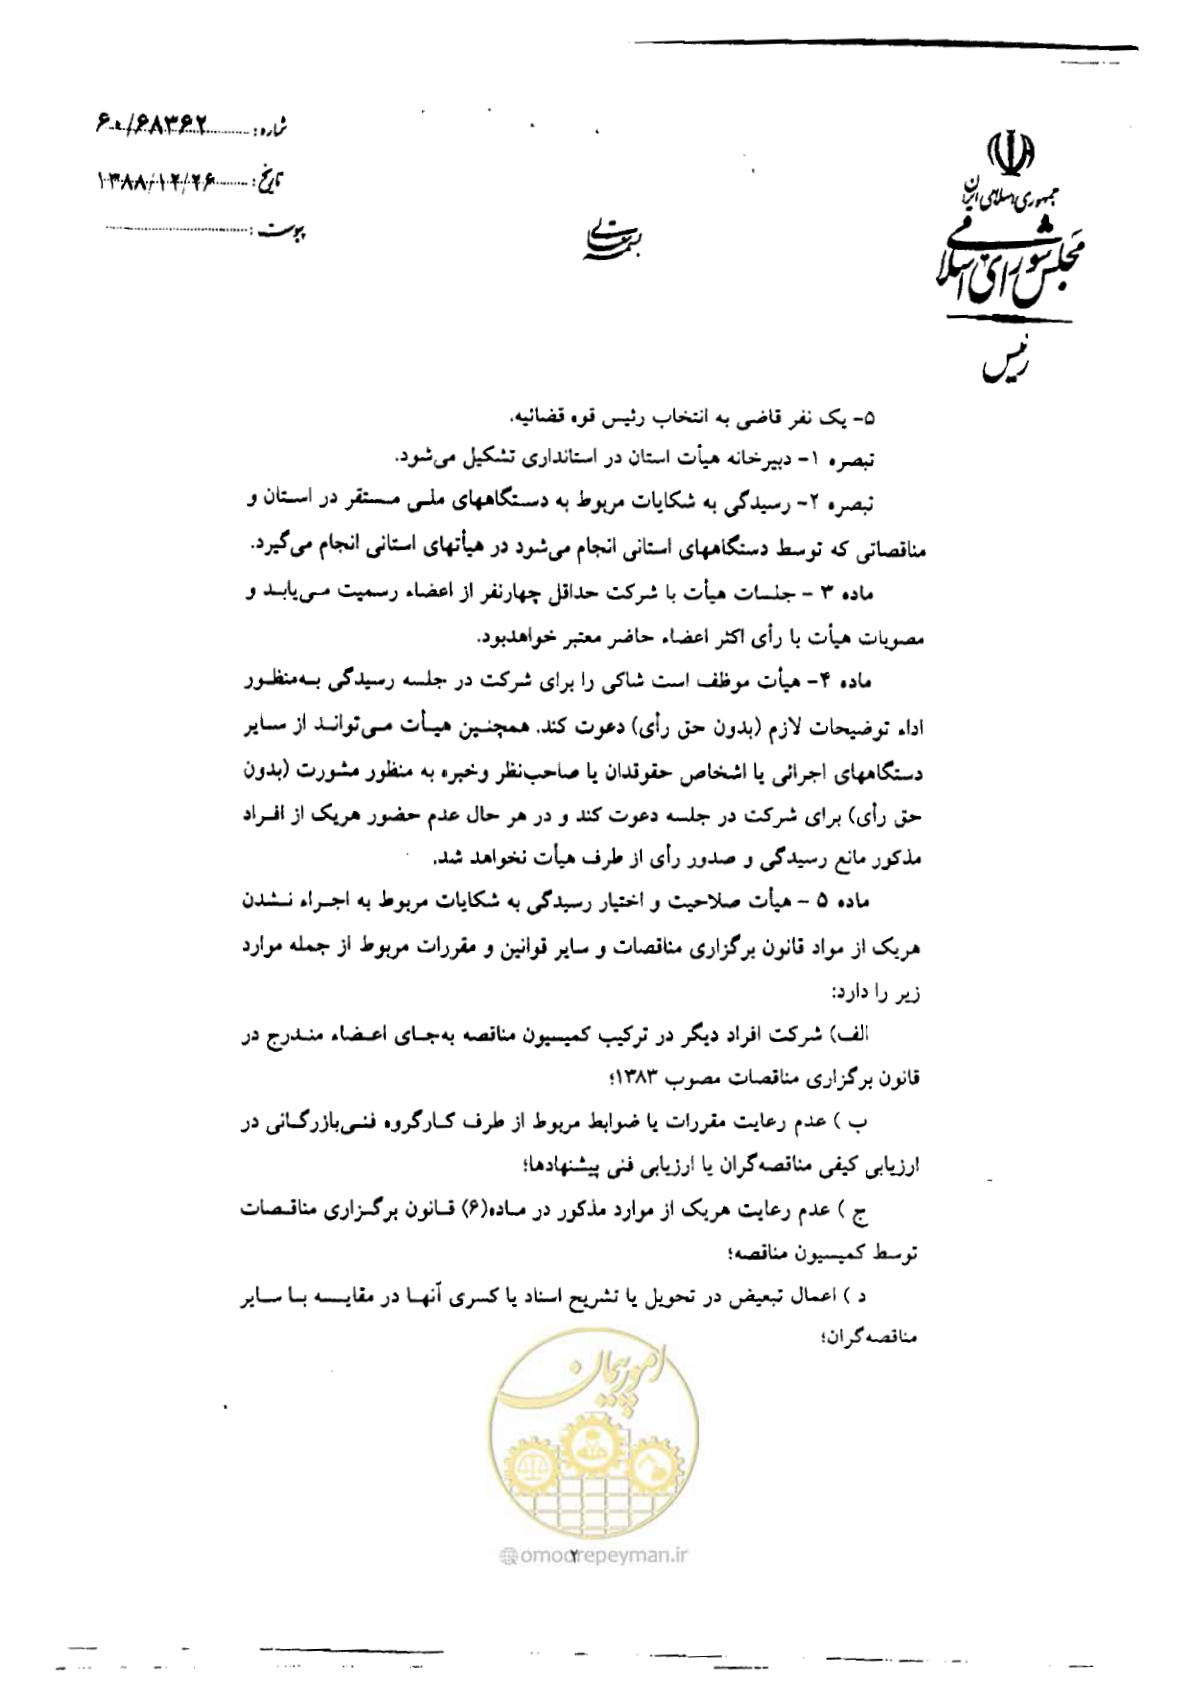 شماره: ۶۰/۶۸۳۶۲
تاریخ: ۱۳۸۸/۱۲/۲۶
پیوست:
جمهوری اسلامی ایران
مجلس شورای اسلامی
رئیس
بسمه تعالی
۵- یک نفر قاضی به انتخاب رئیس قوه قضائیه.
تبصره ۱- دبیرخانه هیأت استان در استانداری تشکیل می‌شود.
تبصره ۲- رسیدگی به شکایات مربوط به دستگاههای ملی مستقر در استان و
مناقصاتی که توسط دستگاههای استانی انجام می‌شود در هیأتهای استانی انجام می‌گیرد.
ماده ۳ - جلسات هیأت با شرکت حداقل چهارنفر از اعضاء رسمیت می‌یابد و
مصوبات هیأت با رأی اکثر اعضاء حاضر معتبر خواهدبود.
ماده ۴- هیأت موظف است شاکی را برای شرکت در جلسه رسیدگی به‌منظور
اداء توضیحات لازم (بدون حق رأی) دعوت کند. همچنین هیأت می‌تواند از سایر
دستگاههای اجرائی یا اشخاص حقوقدان یا صاحب‌نظر وخبره به منظور مشورت (بدون
حق رأی) برای شرکت در جلسه دعوت کند و در هر حال عدم حضور هریک از افراد
مذکور مانع رسیدگی و صدور رأی از طرف هیأت نخواهد شد.
ماده ۵ - هیأت صلاحیت و اختیار رسیدگی به شکایات مربوط به اجراء نشدن
هریک از مواد قانون برگزاری مناقصات و سایر قوانین و مقررات مربوط از جمله موارد
زیر را دارد:
الف) شرکت افراد دیگر در ترکیب کمیسیون مناقصه به‌جای اعضاء مندرج در
قانون برگزاری مناقصات مصوب ۱۳۸۳؛
ب ) عدم رعایت مقررات یا ضوابط مربوط از طرف کارگروه فنی‌بازرگانی در
ارزیابی کیفی مناقصه‌گران یا ارزیابی فنی پیشنهادها؛
ج ) عدم رعایت هریک از موارد مذکور در ماده(۶) قانون برگزاری مناقصات
توسط کمیسیون مناقصه؛
د ) اعمال تبعیض در تحویل یا تشریح اسناد یا کسری آنها در مقایسه با سایر
مناقصه‌گران؛
امور پیمان
omoorepeyman.ir
۲